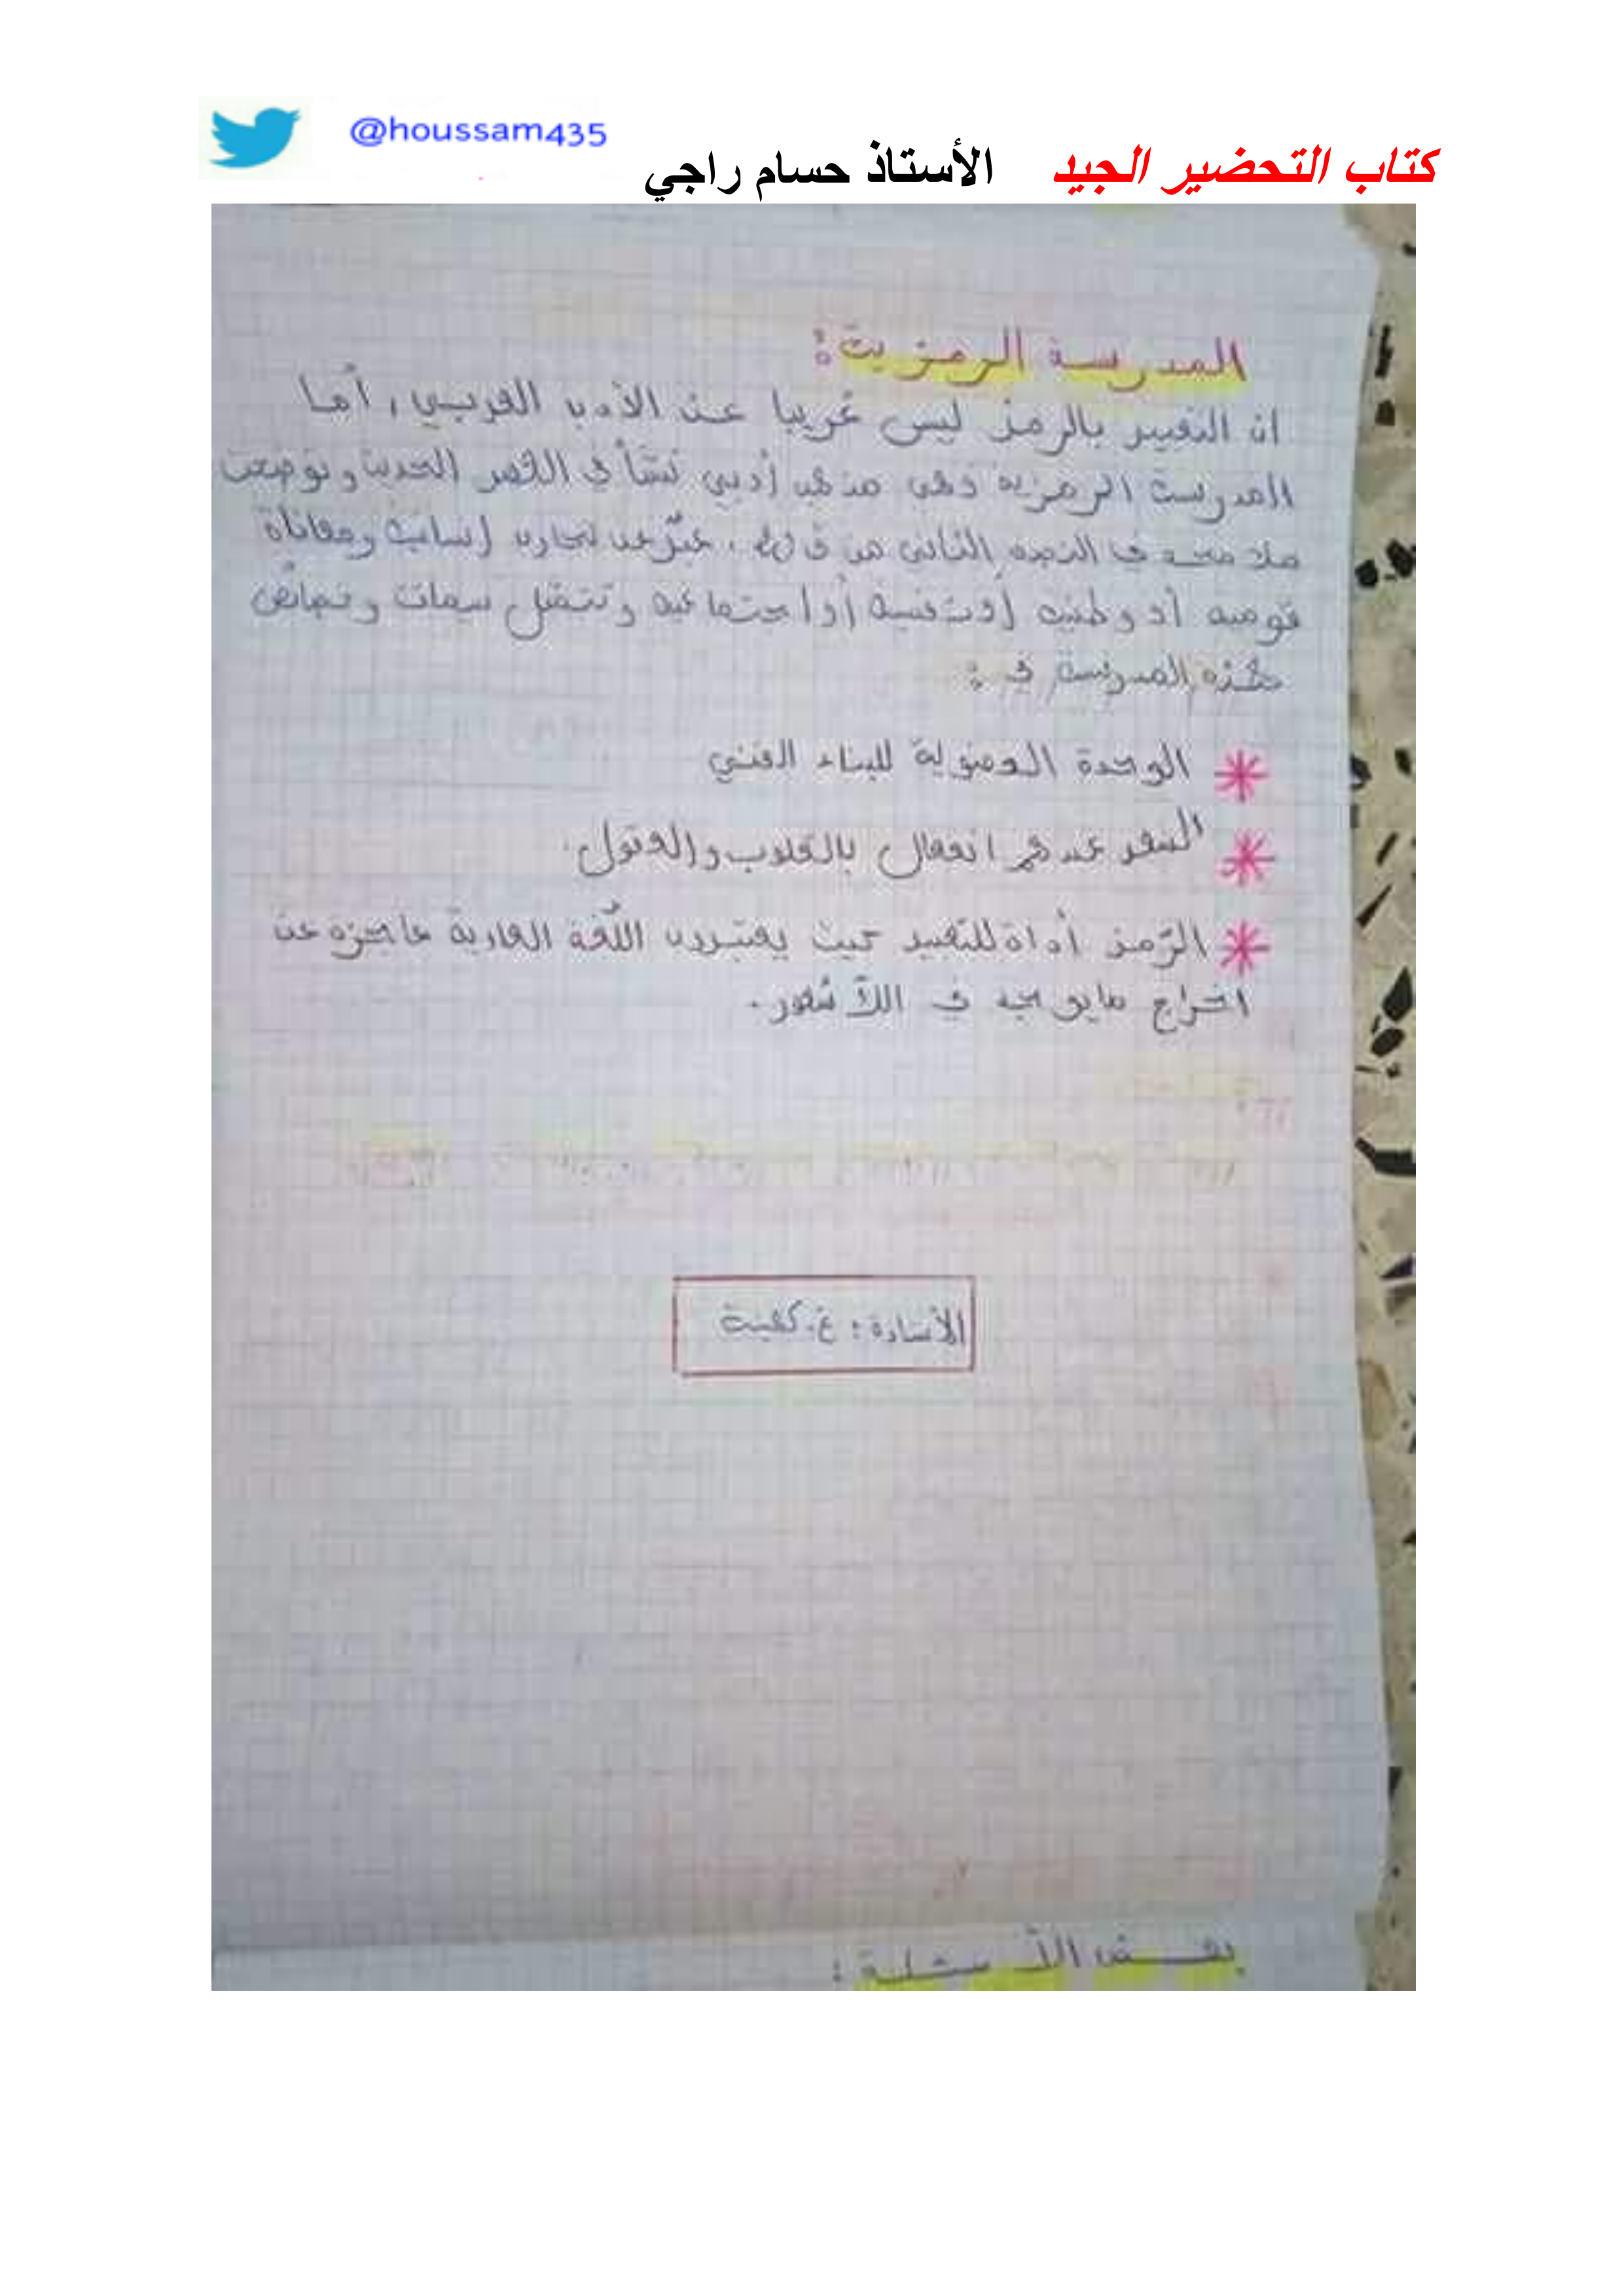 @houssam435
كتاب التحضير الجيد الأستاذ حسام راجي
المدرسة الرمزية:
ان التعبير بالرمز ليس غريبا عند الأدب العربي، أما
المدرسة الرمزية فهي مذهب أدبي نشأ في العصر الحديث و توضحت
ملامحه في النصف الثاني من ق، عبّر عن تجارب إنسانية ومعاناة
قومية أو وطنية أو نفسية أو اجتماعية وتتمثل سمات وخصائص
هذه المدرسة في:
الوحدة العضوية للبناء الفني
الشعر عندهم انفعال بالقلوب والعقول.
الرّمز أداة للتعبير حيث يعتبرون اللّغة العادية عاجزة عن
اخراج ما يوجد في اللاّشعور.
الأستاذة: غ. كهينة
بعض الأسئلة: